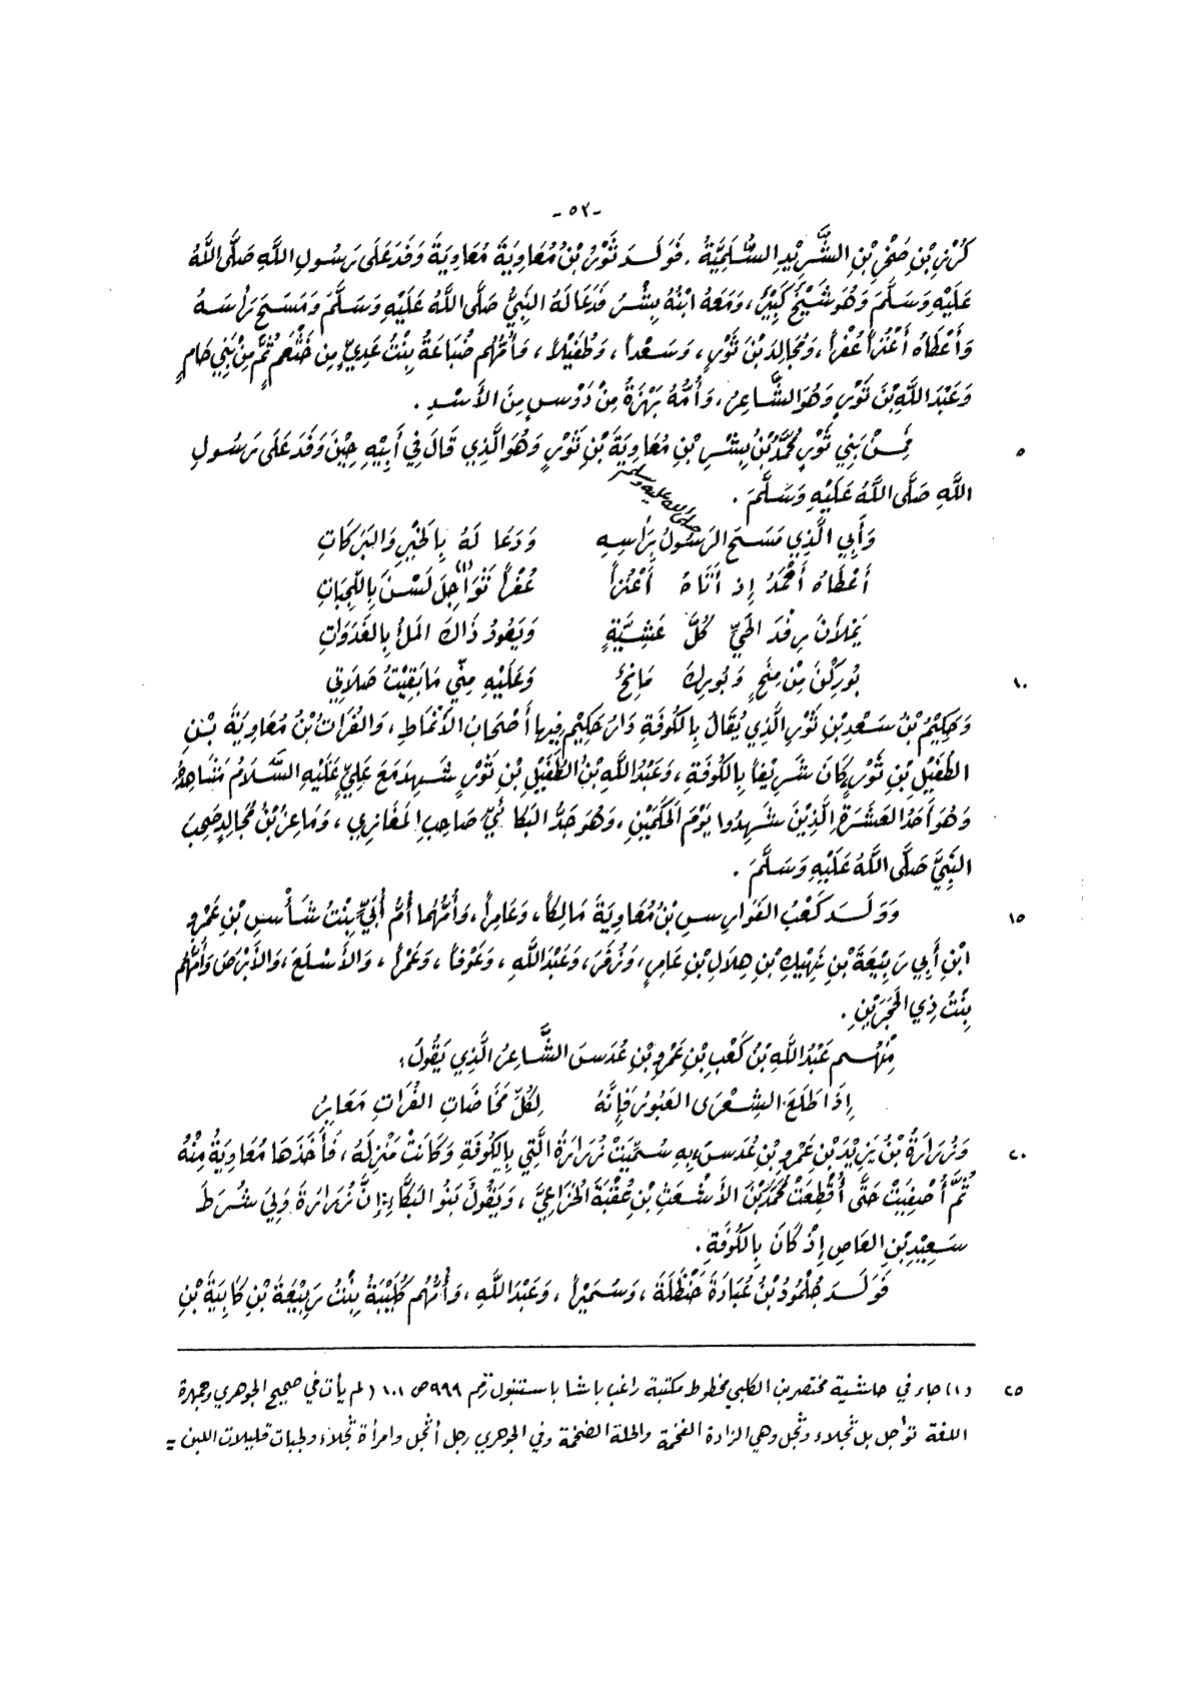 -٥٢-
كُرْزِ بْنِ صَخْرِ بْنِ الشَّرِيْدِ السُّلَمِيَّةُ . فَوَلَدَ ثَوْرُ بْنُ مُعَاوِيَةَ مُعَاوِيَةَ وَفَدَ عَلَى رَسُولِ اللَّهِ صَلَّى اللَّهُ
عَلَيْهِ وَسَلَّمَ وَهُوَ شَيْخٌ كَبِيْرٌ، وَمَعَهُ ابْنُهُ بِشْرٌ فَدَعَا لَهُ النَّبِيُّ صَلَّى اللَّهُ عَلَيْهِ وَسَلَّمَ وَمَسَحَ رَأْسَهُ
وَأَعْطَاهُ أَعْنُزاً عُفْراً، وَمُجَالِدَ بْنَ ثَوْرٍ، وَسَعْداً، وَطُفَيْلاً، وَأُمُّهُم ضُبَاعَةُ بِنْتُ عَدِيٍّ مِن خَثْعَمَ ثُمَّ مِنْ بَنِي حَامٍ
وَعَبْدَ اللَّهِ بْنَ ثَوْرٍ وَهُوَ الشَّاعِرُ، وَأُمُّهُ بَهْزَةُ مِنْ دَوْسٍ مِنَ الأَسْدِ .
٥ فَمِنْ بَنِي ثَوْرٍ مُحَمَّدُ بْنُ بِشْرِ بْنِ مُعَاوِيَةَ بْنِ ثَوْرٍ وَهُوَ الَّذِي قَالَ فِي أَبِيْهِ حِيْنَ وَفَدَ عَلَى رَسُولِ
اللَّهِ صَلَّى اللَّهُ عَلَيْهِ وَسَلَّمَ .
صلى الله عليه وسلم
وَأَبِي الَّذِي مَسَحَ الرَسُولُ بِرَأْسِهِ وَدَعَا لَهُ بِالخَيْرِ وَالبَرَكَاتِ
أَعْطَاهُ أَحْمَدُ إِذ أَتَاهُ أَعْنُزاً عُفْراً ثَوَاجِلَ(١) لَسْنَ بِاللَّجِبَاتِ
يَمْلأْنَ رِفْدَ الحَيِّ كُلَّ عَشِيَّةٍ وَيَعُودُ ذَاكَ المَلْءُ بِالغَدَوَاتِ
١٠ بُورِكْنَ مِنْ مِنَحٍ وَبُورِكَ مَانِحٌ وَعَلَيْهِ مِنِّي مَا بَقِيْتُ صَلَاتِي
وَحَكِيْمُ بْنُ سَعْدِ بْنِ ثَوْرٍ الَّذِي يُقَالُ بِالكُوفَةِ دَارُ حَكِيْمٍ فِيهَا أَصْحَابُ الأَنْمَاطِ، وَالفُرَاتُ بْنُ مُعَاوِيَةَ بْنِ
الطُفَيْلِ بْنِ ثَوْرٍ كَانَ شَرِيْفاً بِالكُوفَةِ، وَعَبْدُ اللَّهِ بْنُ الطُّفَيْلِ بْنِ ثَوْرٍ شَهِدَ مَعَ عَلِيٍّ عَلَيْهِ السَّلَامُ مَشَاهِدَهُ
وَهُوَ أَحَدُ العَشَرَةِ الَّذِيْنَ شَهِدُوا يَوْمَ الحَكَمَيْنِ، وَهُوَ جَدُّ البَكَّائِيِّ صَاحِبِ المَغَازِي، وَمَاعِزُ بْنُ مُجَالِدٍ صَحِبَ
النَّبِيَّ صَلَّى اللَّهُ عَلَيْهِ وَسَلَّمَ .
١٥ وَوَلَدَ كَعْبُ الفَوَارِسِ بْنُ مُعَاوِيَةَ مَالِكاً، وَعَامِراً، وَأُمُّهُمَا أُمُّ أُبَيٍّ بِنْتُ شَأْسِ بْنِ عَمْرِو
ابْنِ أَبِي رَبِيْعَةَ بْنِ نَهِيْكِ بْنِ هِلَالِ بْنِ عَامِرٍ، وَزُفَرَ، وَعَبْدَ اللَّهِ، وَعَوْفاً، وَعَمْراً، وَالأَسْلَعَ، وَالأَبْرَصَ وَأُمُّهُم
بِنْتُ ذِي الحَجَرَيْنِ .
مِنْهُم عَبْدُ اللَّهِ بْنُ كَعْبِ بْنِ عَمْرِو بْنِ عُدَسَ الشَّاعِرُ الَّذِي يَقُولُ:
إِذَا طَلَعَ الشِعْرَى العَبُورُ فَإِنَّهُ لِكُلِّ مَخَاضَاتِ الفُرَاتِ مَعَابِرُ
٢٠ وَزُرَارَةُ بْنُ يَزِيْدَ بْنِ عَمْرِو بْنِ عُدَسَ، بِهِ سُمِّيَتْ زُرَارَةُ الَّتِي بِالكُوفَةِ وَكَانَتْ مَنْزِلَهُ، فَأَخَذَهَا مُعَاوِيَةُ مِنْهُ
ثُمَّ أُصْفِيَتْ حَتَّى أُقْطِعَتْ مُحَمَّدَ بْنَ الأَشْعَثِ بْنِ عُقْبَةَ الخُزَاعِيَّ، وَيَقُولُ بَنُو البَكَّاءِ: إِنَّ زُرَارَةَ وَلِيَ شُرَطَ
سَعِيْدِ بْنِ العَاصِ إِذْ كَانَ بِالكُوفَةِ .
فَوَلَدَ جُلْمُودُ بْنُ عُبَادَةَ حَنْظَلَةَ، وَسُمَيْراً، وَعَبْدَ اللَّهِ، وَأُمُّهُم كُلَيْبَةُ بِنْتُ رَبِيْعَةَ بْنِ كَابِيَةَ بْنِ
٢٥ (١) جاء في حاشية مختصر بن الكلبي مخطوط مكتبة راغب باشا باستنبول رقم ٩٩٩ ص ١٠١ (لم يأت في صحيح الجوهري وجمهرة
اللغة ثوأجل بل ثجلاء وثجل وهي المزادة الفخمة والجلة الضخمة وفي الجوهري رجل أثجل وامرأة ثجلاء ولجبات قليلات اللبن =